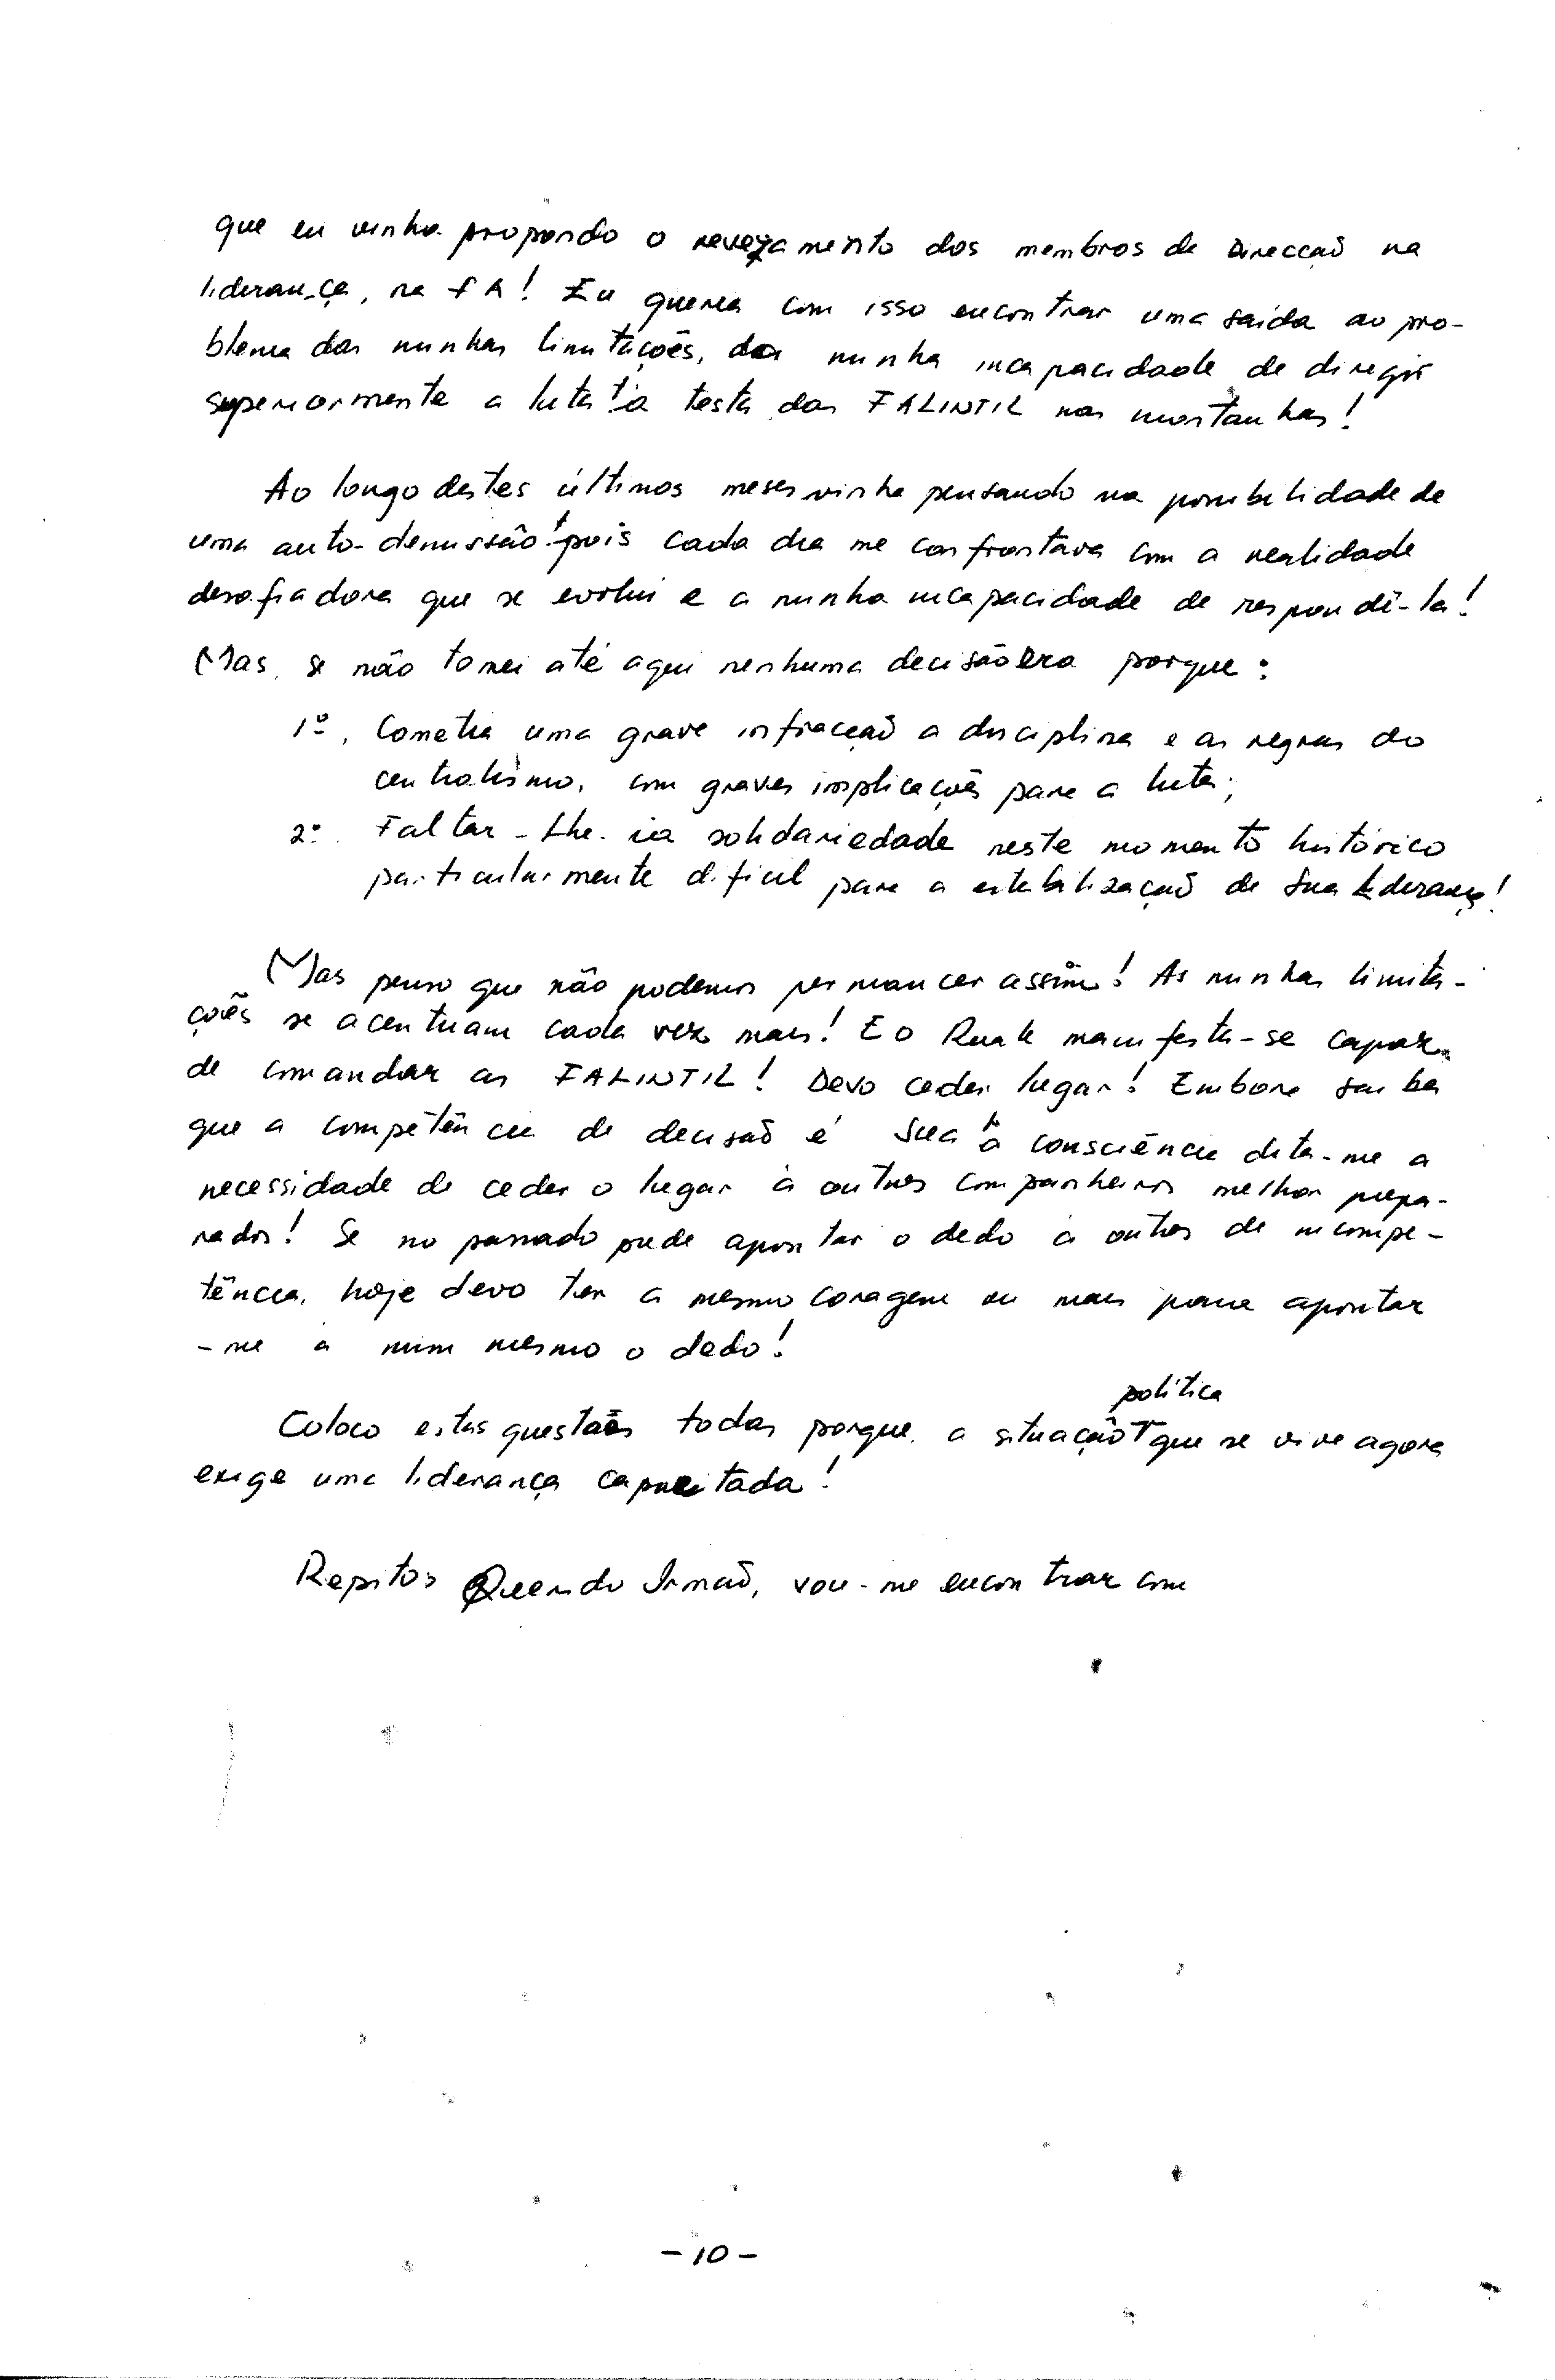 que eu vinha propondo o revezamento dos membros de Direcção na
liderança, na FA! Eu queria com isso encontrar uma saída ao pro-
blema das minhas limitações, da minha incapacidade de dirigir
superiormente a luta à testa das FALINTIL nas montanhas!
Ao longo destes últimos meses vinha pensando na possibilidade de
uma auto-demissão! pois cada dia me confrontava com a realidade
desafiadora que se evolui e a minha incapacidade de respondê-la!
Mas, se não tomei até aqui nenhuma decisão era porque:
1º, Cometia uma grave infracção a disciplina e as regras do
centralismo, com graves implicações para a luta;
2º. Faltar-lhe-ia solidariedade neste momento histórico
particularmente difícil para a estabilização de Sua liderança!
Mas penso que não podemos permancer assim! As minhas limita-
ções se acentuam cada vez mais! E o Ruak manifesta-se capaz
de comandar as FALINTIL! Devo ceder lugar! Embora saiba
que a competência de decisão é Sua a consciência dita-me a
necessidade de ceder o lugar à outros companheiros melhor prepa-
rados! Se no passado pude apontar o dedo à outros de incompe-
tência, hoje devo ter a mesmo coragem ou mais para apontar
-me a mim mesmo o dedo!
Coloco estas questões todas porque a situação política que se vive agora
exige uma liderança capacitada!
Repito, Querido Irmão, vou-me encontrar com
- 10 -